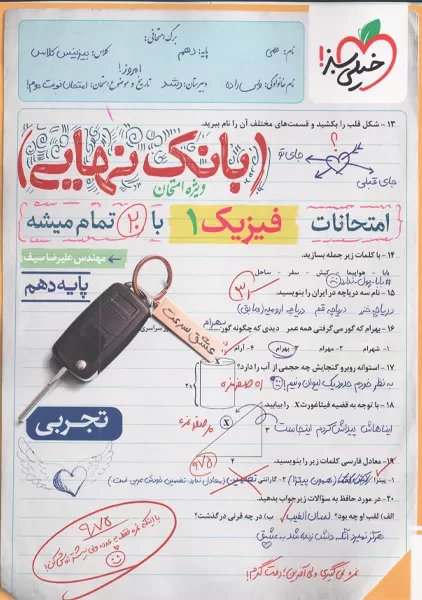 برگ امتحانی
نام:
پایه: دهم
کلاس: بیزینس کلاس
نام خانوادگی:
دبیرستان: رشد
تاریخ و موضوع امتحان: امتحان نوبت دوم!
امروز!
خیلی سبز!
۱۳ - شکل قلب را بکشید و قسمت‌های مختلف آن را نام ببرید.
؟
جای تو
جای قبلی
(بانک نهایی)
ویژه امتحان
{امتحانات فیزیک ۱ با ۲۰ تمام میشه}
مهندس علیرضا سیف
پایه دهم
۱۴ - با کلمات زیر جمله بسازید.
بابا - هواپیما - کیش - سفر - ساحل
#بابا_پول_نداره
۱۵ - نام سه دریاچه در ایران را بنویسید.
دریاچه خزر دریاچه قم دریاچه ارومیه (سابق)
۱۶ - بهرام که گور می‌گرفتی همه عمر دیدی که چگونه گور
بهرام
۱- شهرام ۲- بهرام ۳- ۴- آرام
عشق سرعت
۱۷ - استوانه روبرو گنجایش چه حجمی از آب را دارد؟
۱۸ - با توجه به قضیه فیثاغورث X را بیابید.
X
۳
۴
ایناهاش پیداش کردم اینجاست
تجربی
۱۹ - معادل فارسی کلمات زیر را بنویسید.
۱- پیتزا
۲- گارانتی
۲۰ - در مورد حافظ به سؤالات زیر جواب بدهید.
الف) لقب او چه بود؟ لسان الغیب ب) در چه قرنی درگذشت؟
هرگز نمیرد آنکه دلش زنده شد به عشق